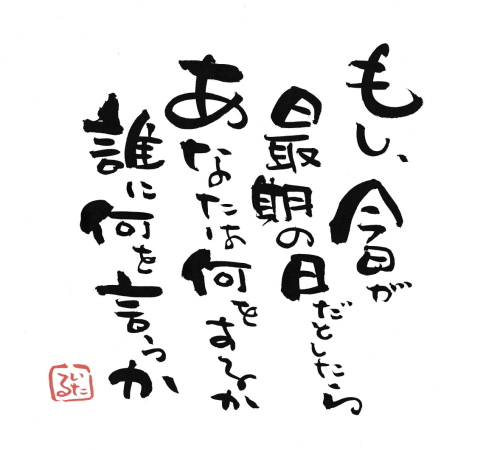 もし、今日が
最期の日だとしたら
あなたは何をするか
誰に何を言うか